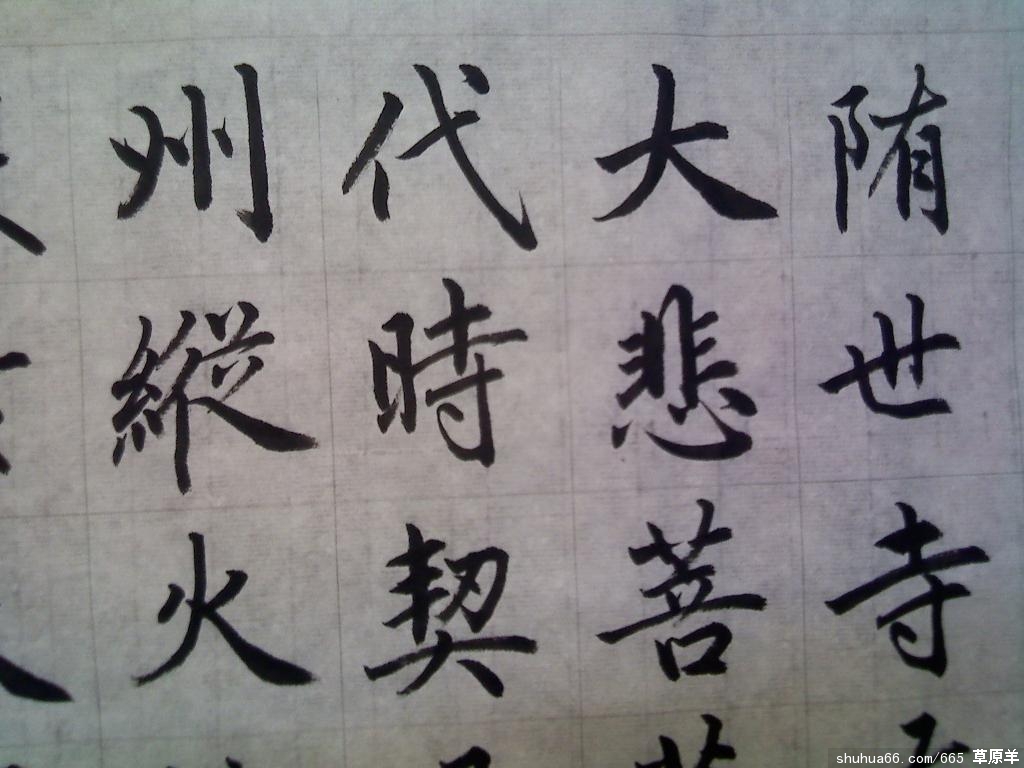 陏世寺
大悲菩
代時契
州縱火
shuhua66.com/665 草原羊